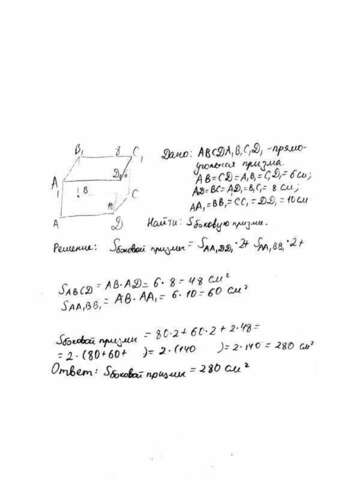 B₁ 8 C₁
A₁ D₁ 6
B C
10
A D
Дано: ABCDA₁B₁C₁D₁ - прямо-
угольная призма.
AB=CD=A₁B₁=C₁D₁=6см;
AD=BC=AD₁=B₁C₁=8 см;
AA₁=BB₁=CC₁=DD₁=10см
Найти: Sбоковую призмы.
Решение: Sбоковой призмы = SAA₁DD₁·2+ SAA₁BB₁·2+
SABCD = AB·AD = 6·8 = 48 см²
SAA₁BB₁ = AB·AA₁ = 6·10 = 60 см²
Sбоковой призмы = 80·2+60·2+2·48=
=2·(80+60+ )=2·(140 )=2·140=280 см²
Ответ: Sбоковой призмы = 280 см²